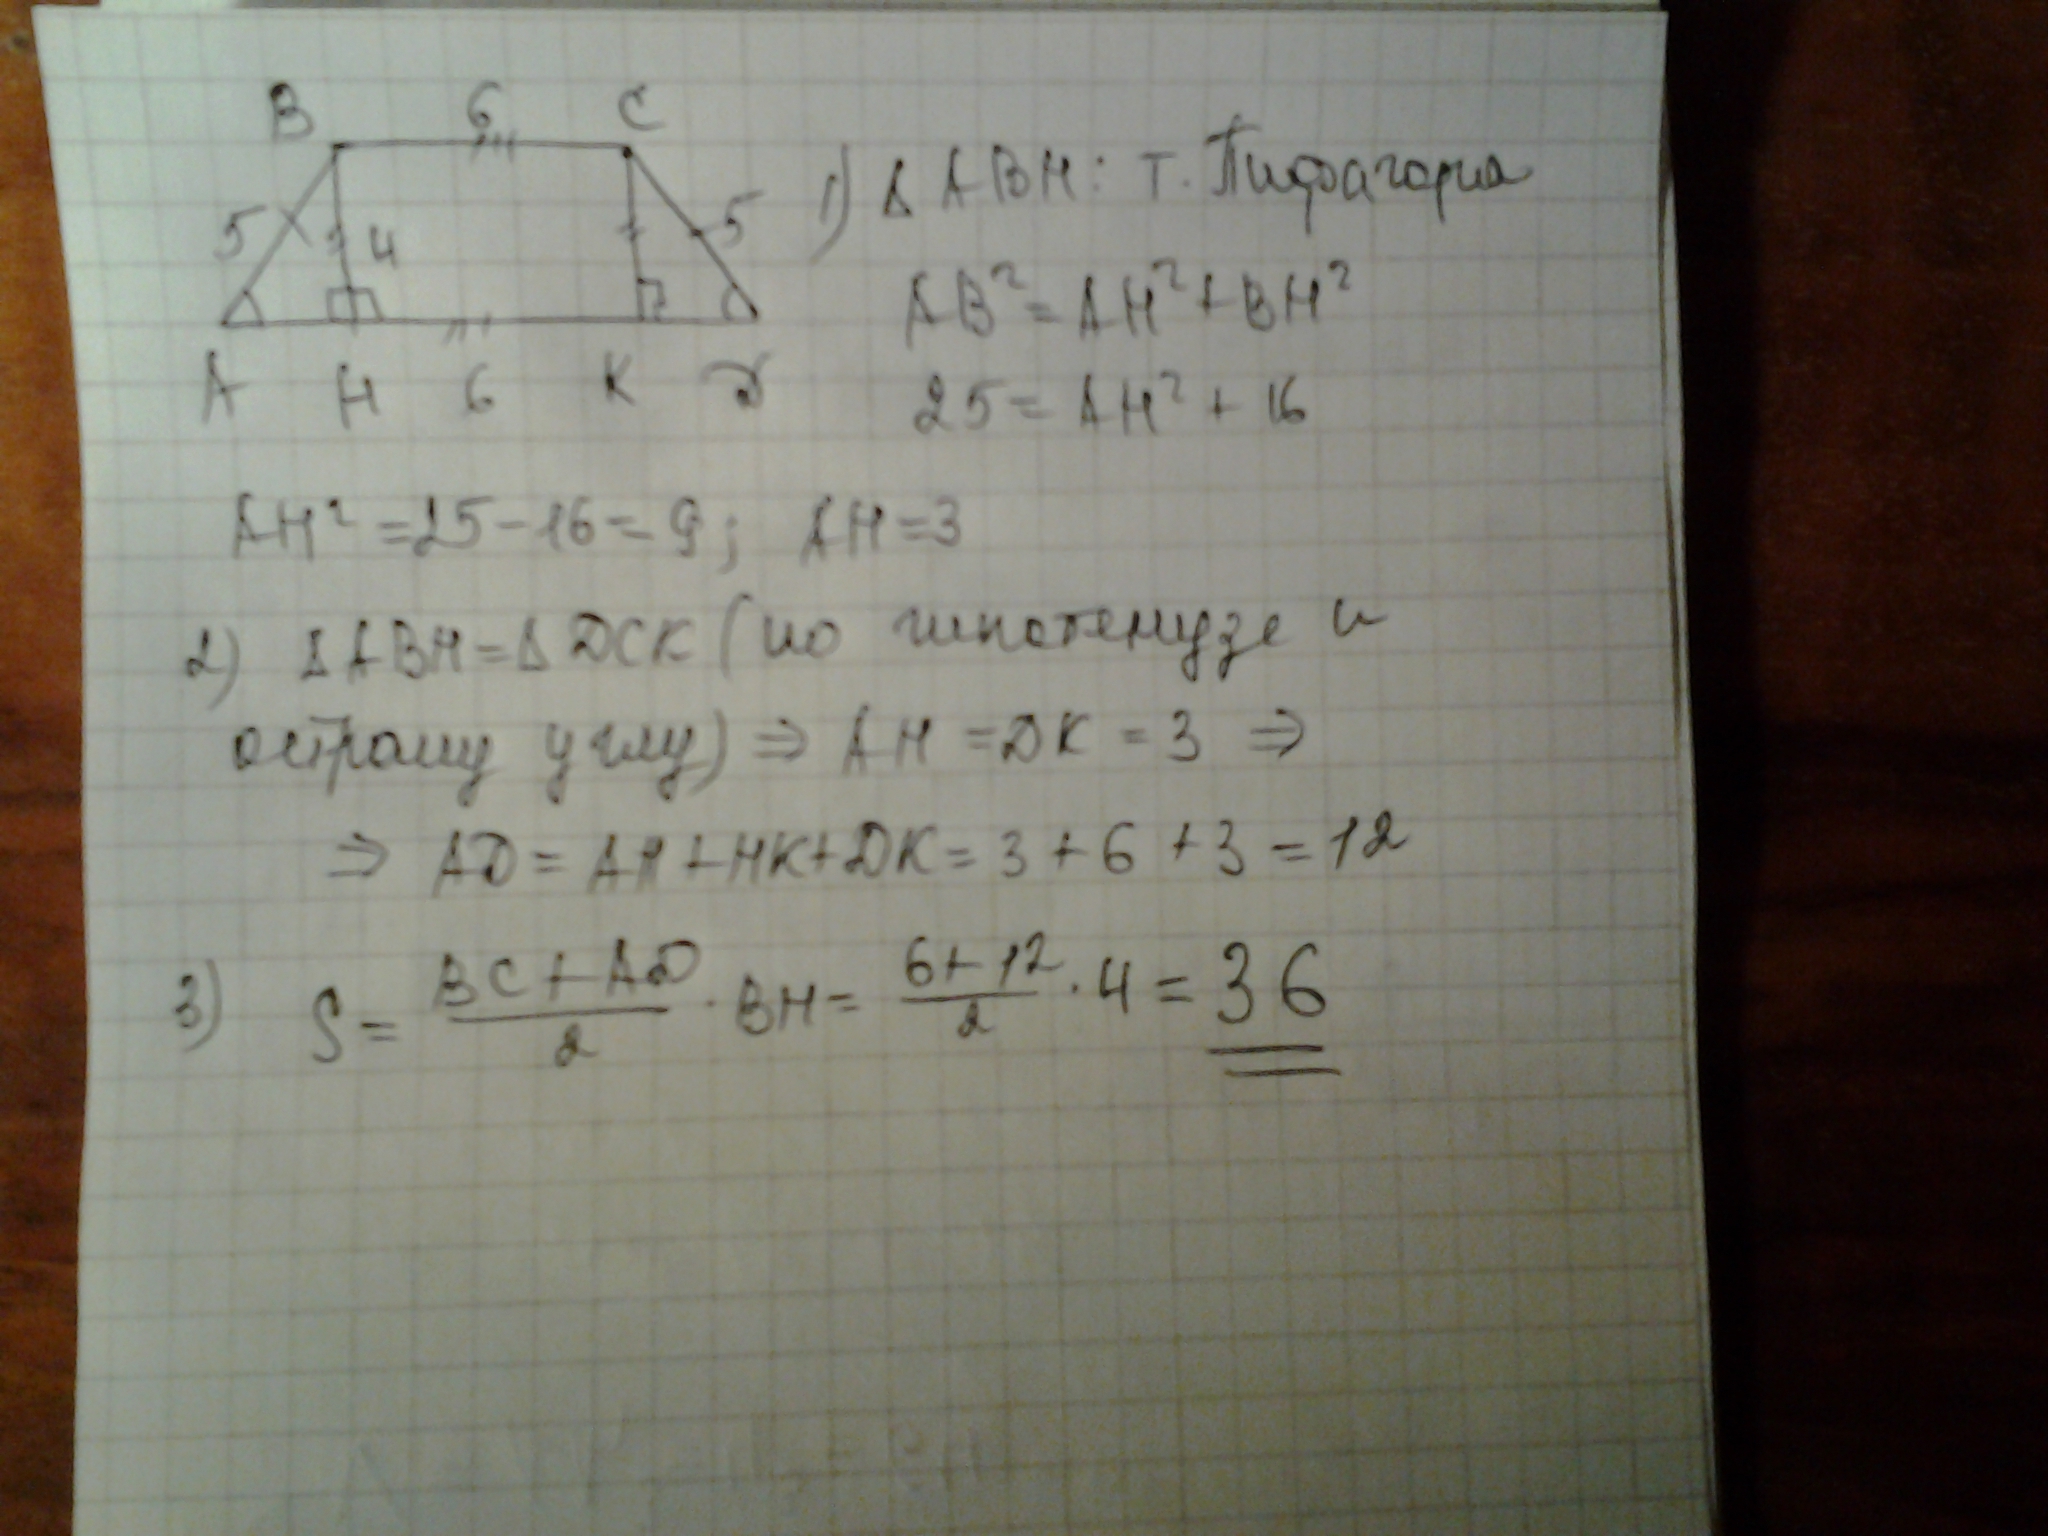 B 6 C
1) Δ ABH: т. Пифагора
5 4 5
AB² = AH² + BH²
A H 6 K D
25 = AH² + 16
AH² = 25 - 16 = 9; AH = 3
2) Δ ABH = Δ DCK (по гипотенузе и
острому углу) ⇒ AH = DK = 3 ⇒
⇒ AD = AH + HK + DK = 3 + 6 + 3 = 12
3) S = (BC + AD)/2 · BH = (6 + 12)/2 · 4 = 36